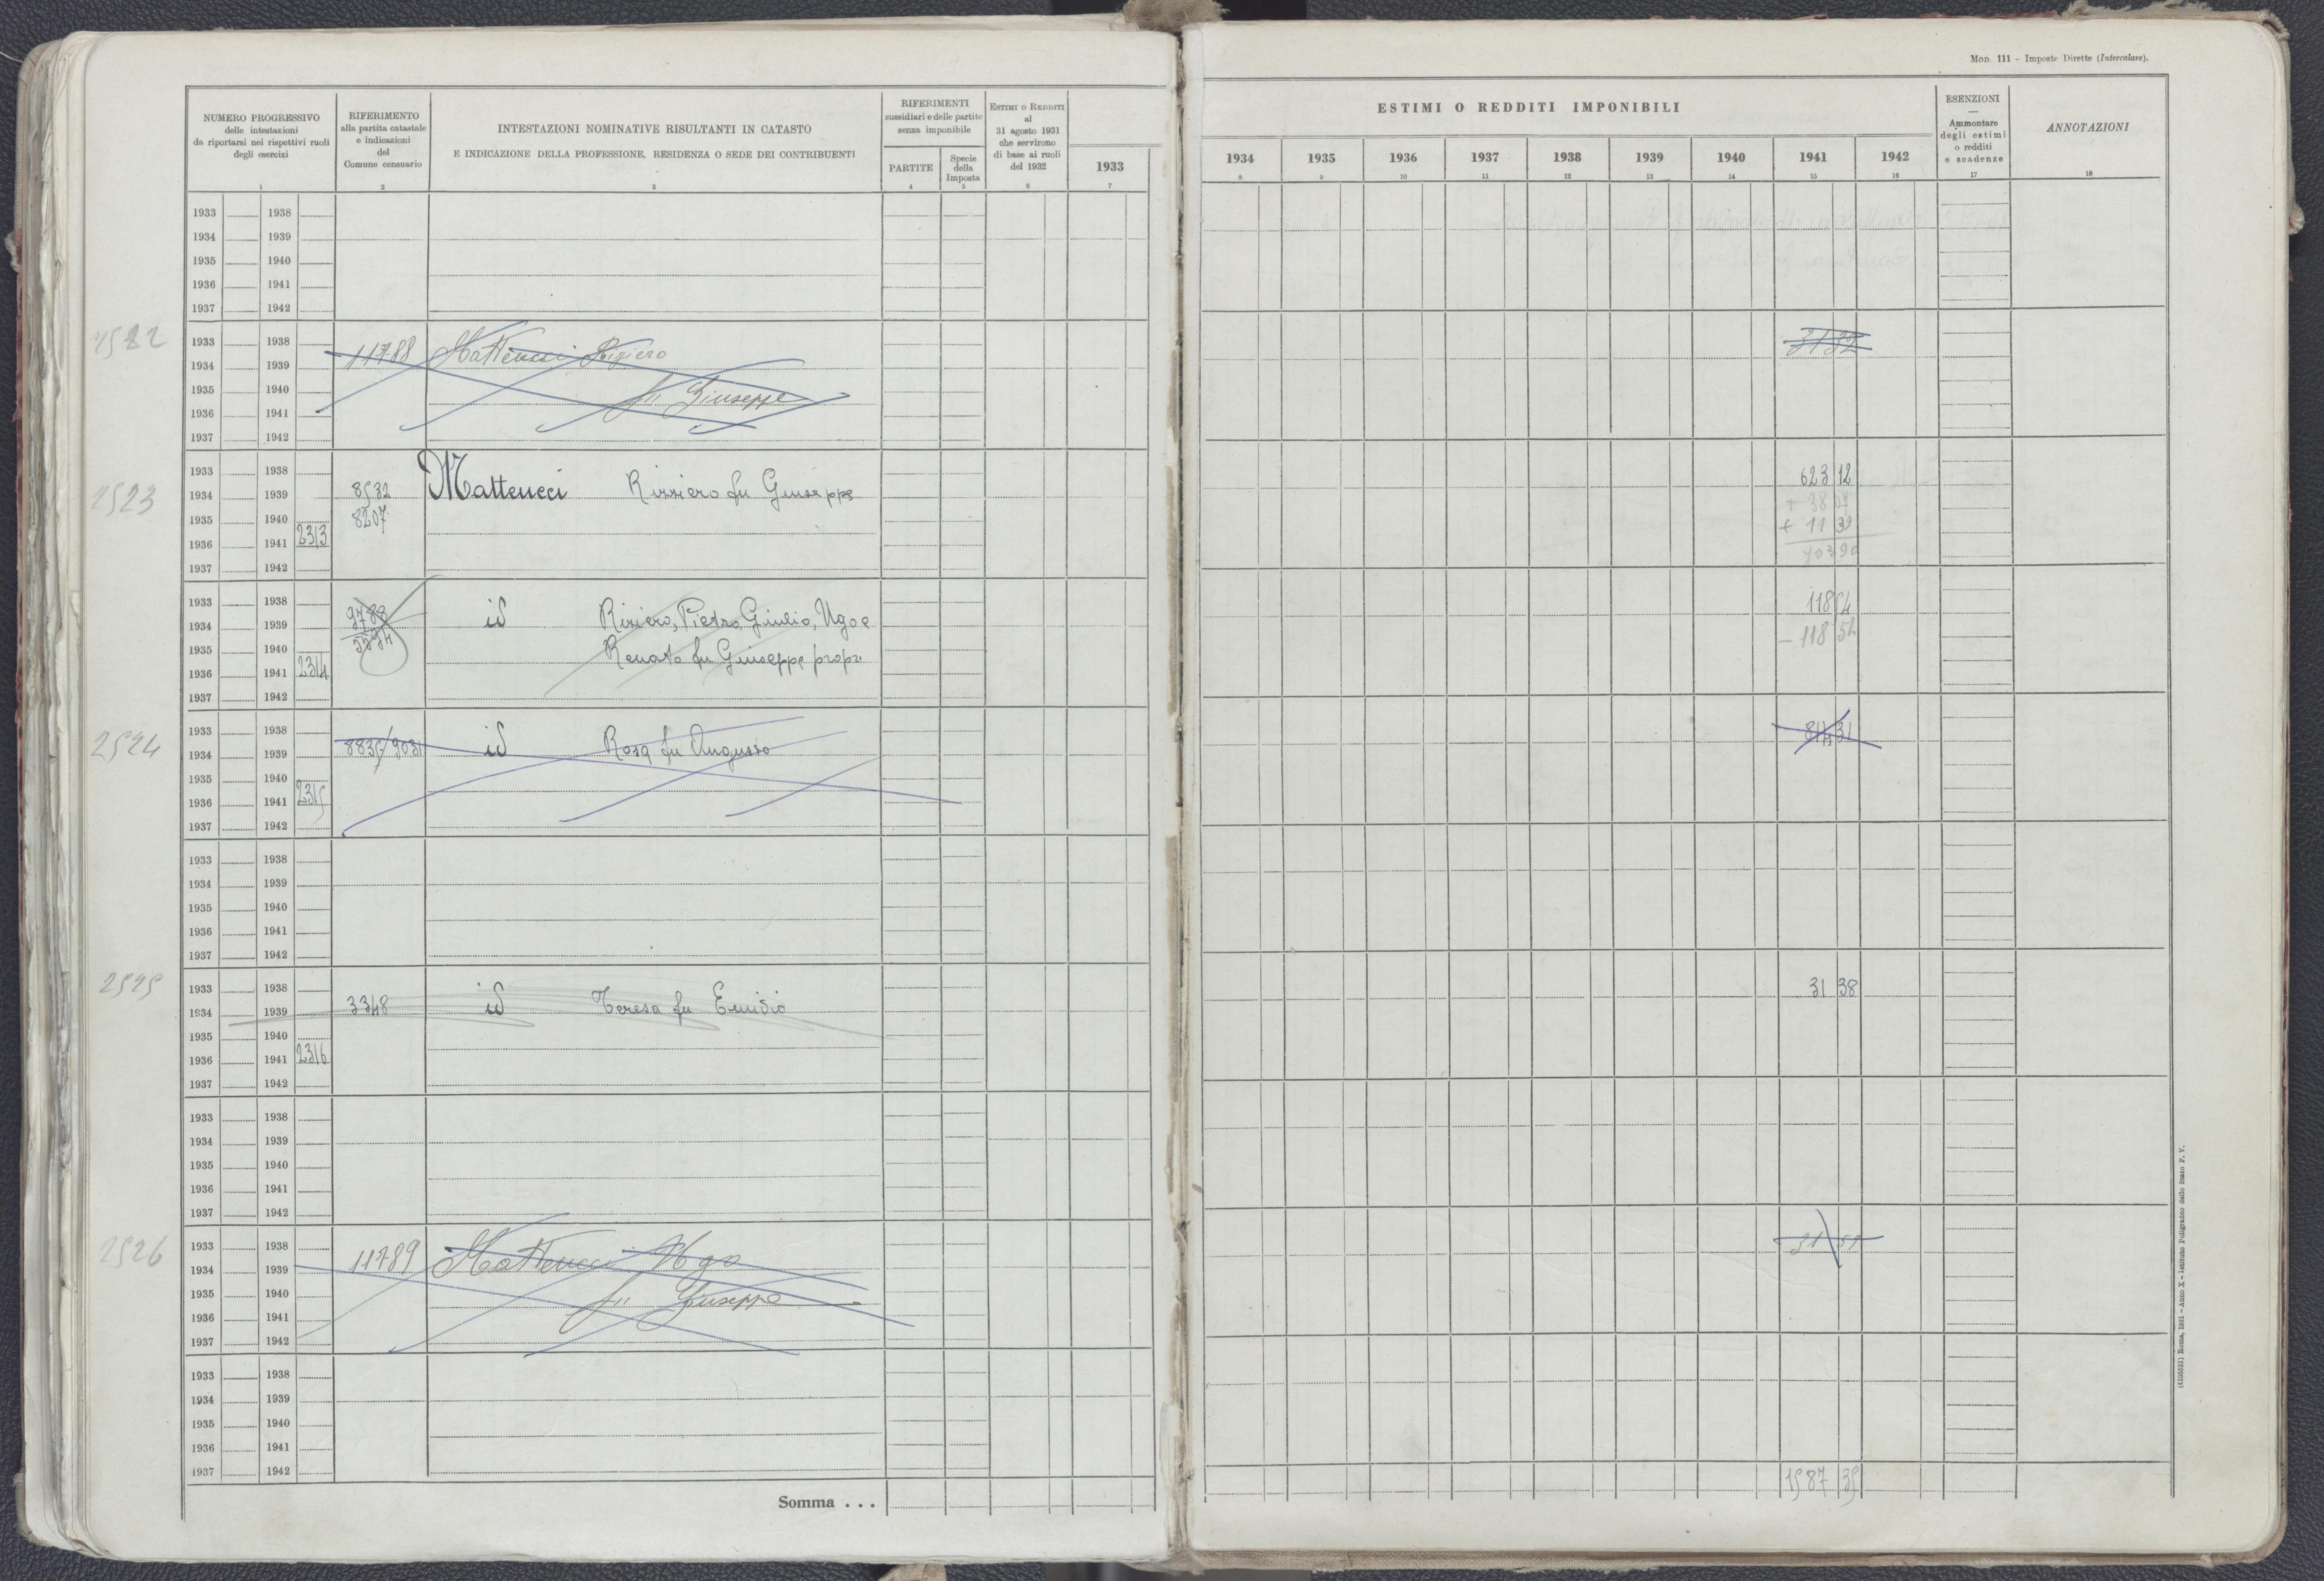 Mod. 111 - Imposte Dirette (Intercalare).
NUMERO PROGRESSIVO
delle intestazioni
da riportarsi nei rispettivi ruoli
degli esercizi
1
RIFERIMENTO
alla partita catastale
e indicazioni
del
Comune censuario
2
INTESTAZIONI NOMINATIVE RISULTANTI IN CATASTO
E INDICAZIONE DELLA PROFESSIONE, RESIDENZA O SEDE DEI CONTRIBUENTI
3
RIFERIMENTI
sussidiari e delle partite
senza imponibile
PARTITE
4
Specie
della
Imposta
5
ESTIMI O REDDITI
al
31 agosto 1931
che servirono
di base ai ruoli
del 1932
6
1933
7
ESTIMI O REDDITI IMPONIBILI
1934 1935 1936 1937 1938 1939 1940 1941 1942
8 9 10 11 12 13 14 15 16
ESENZIONI
—
Ammontare
degli estimi
o redditi
e scadenze
17
ANNOTAZIONI
18
1933 1938
1934 1939
1935 1940
1936 1941
1937 1942
2522
1933 1938
11788 Matteucci Riziero 31 32
1934 1939
1935 1940
fu Giuseppe
1936 1941
1937 1942
1933 1938
623 12
2523
1934 1939 8532 Matteucci Rizziero fu Giuseppe
1935 1940 8207
+ 11 39
1936 1941 2313
703 90
1937 1942
1933 1938
9788 118 54
1934 1939 id Riziero, Pietro, Giulio, Ugo e
5594 - 118 54
1935 1940
Renato fu Giuseppe propr
1936 1941 2314
1937 1942
1933 1938
2524
8835/9031 id Rosa fu Augusto
1934 1939
1935 1940
1936 1941 2315
1937 1942
1933 1938
1934 1939
1935 1940
1936 1941
1937 1942
2525
1933 1938
31 38
1934 1939 3348 id Teresa fu Emidio
1935 1940
1936 1941 2316
1937 1942
1933 1938
1934 1939
1935 1940
1936 1941
1937 1942
2526
1933 1938
11789 Matteucci Ugo
1934 1939
1935 1940
fu Giuseppe
1936 1941
1937 1942
1933 1938
1934 1939
1935 1940
1936 1941
1937 1942
1587 35
Somma . . .
(4103681) Roma, 1931 - Anno X - Istituto Poligrafico dello Stato P. V.